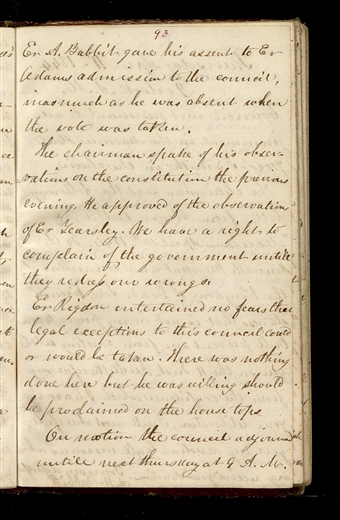 93
Er A. Babbit gave his assent to Er
Adams admission to the council,
inasmuch as he was absent when
the vote was taken.
The chairman spake of his obser-
vations on the constitution the previous
evening. He approved of the observations
of Er Yearsley. We have a right to
complain of the government untill
they redress our wrongs.
Er Rigdon entertained no fears that
legal exceptions to this council could
or would be taken. There was nothing
done here but he was willing should
be proclaimed on the house tops.
On motion the council adjourned
untill next thursday at 9 A.M.